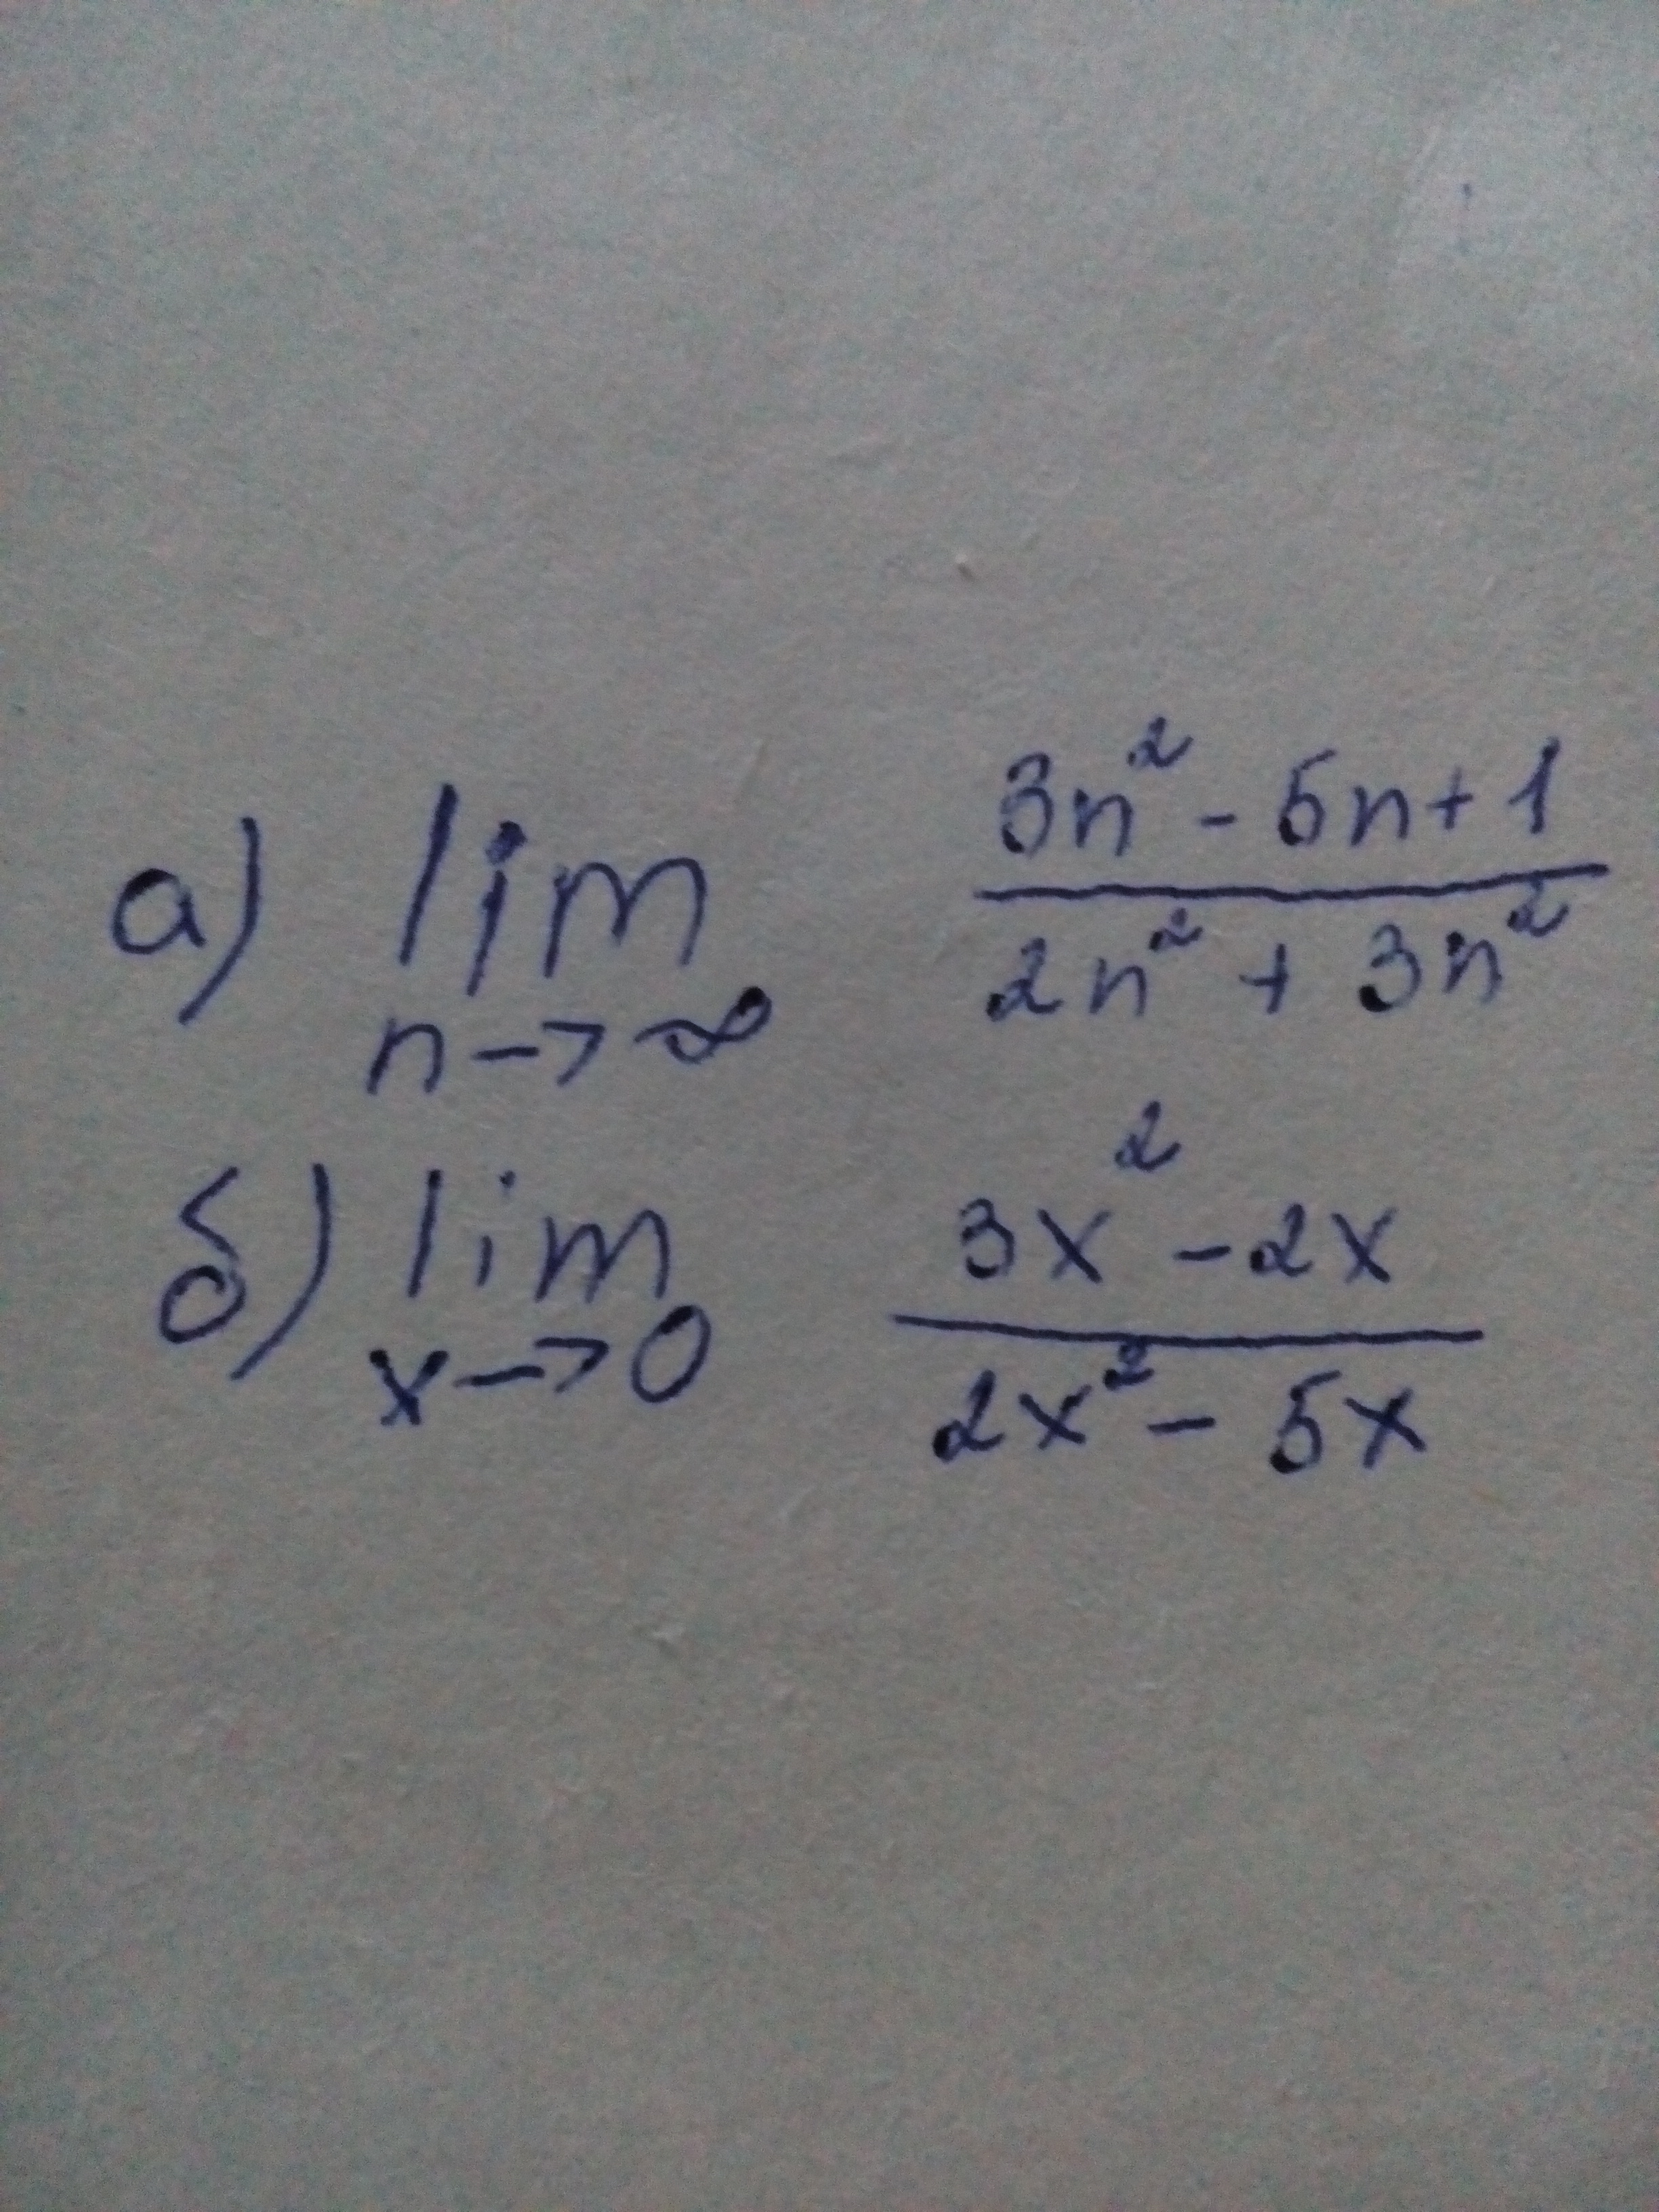 а) lim n→∞ (3n² - 5n + 1) / (2n² + 3n²)
б) lim x→0 (3x² - 2x) / (2x² - 5x)